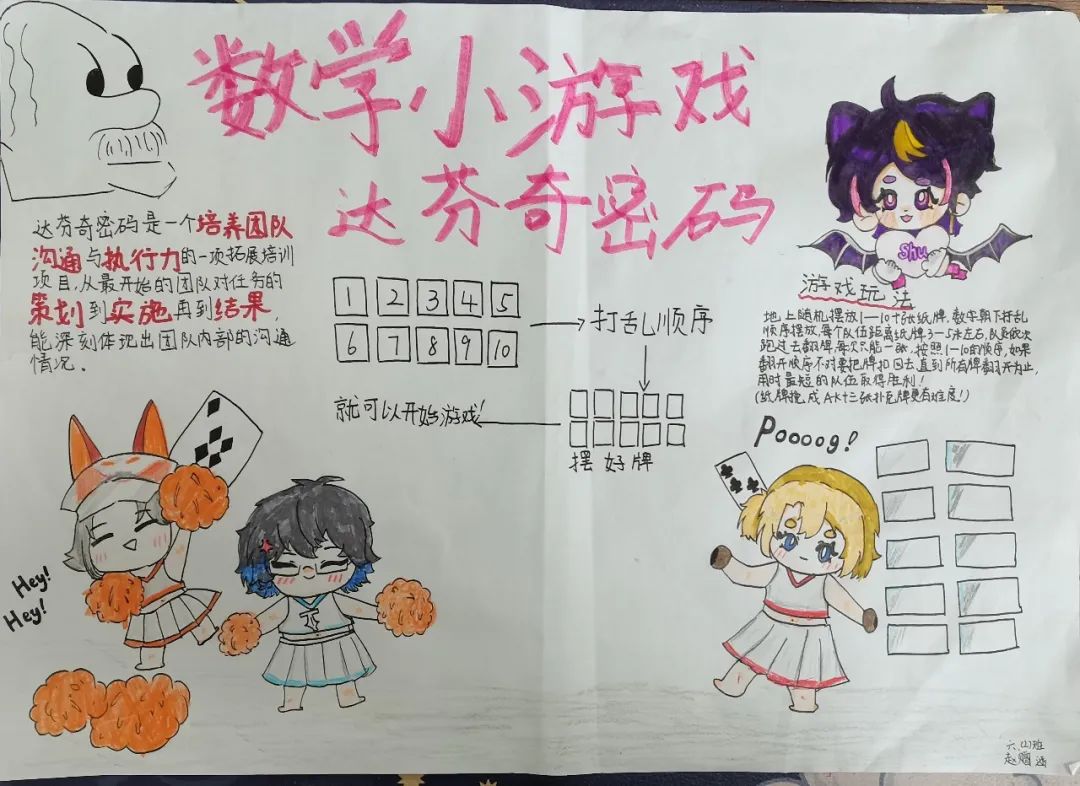 数学小游戏
达芬奇密码
达芬奇密码是一个培养团队
沟通与执行力的一项拓展培训
项目,从最开始的团队对任务的
策划到实施再到结果,
能深刻体现出团队内部的沟通
情况。
1 2 3 4 5
6 7 8 9 10
打乱顺序
摆好牌
就可以开始游戏!
Shu
游戏玩法
地上随机摆放1—10十张纸牌,数字朝下打乱
顺序摆放,每个队伍距离纸牌3-5米左右,队员依次
跑过去翻牌,每次只能一张,按照1—10的顺序,如果
翻开顺序不对要把牌扣回去,直到所有牌翻开为止,
用时最短的队伍取得胜利!
(纸牌换成A-K十三张扑克牌更有难度!)
Poooog!
Hey!
Hey!
六.(2)班
赵 涵